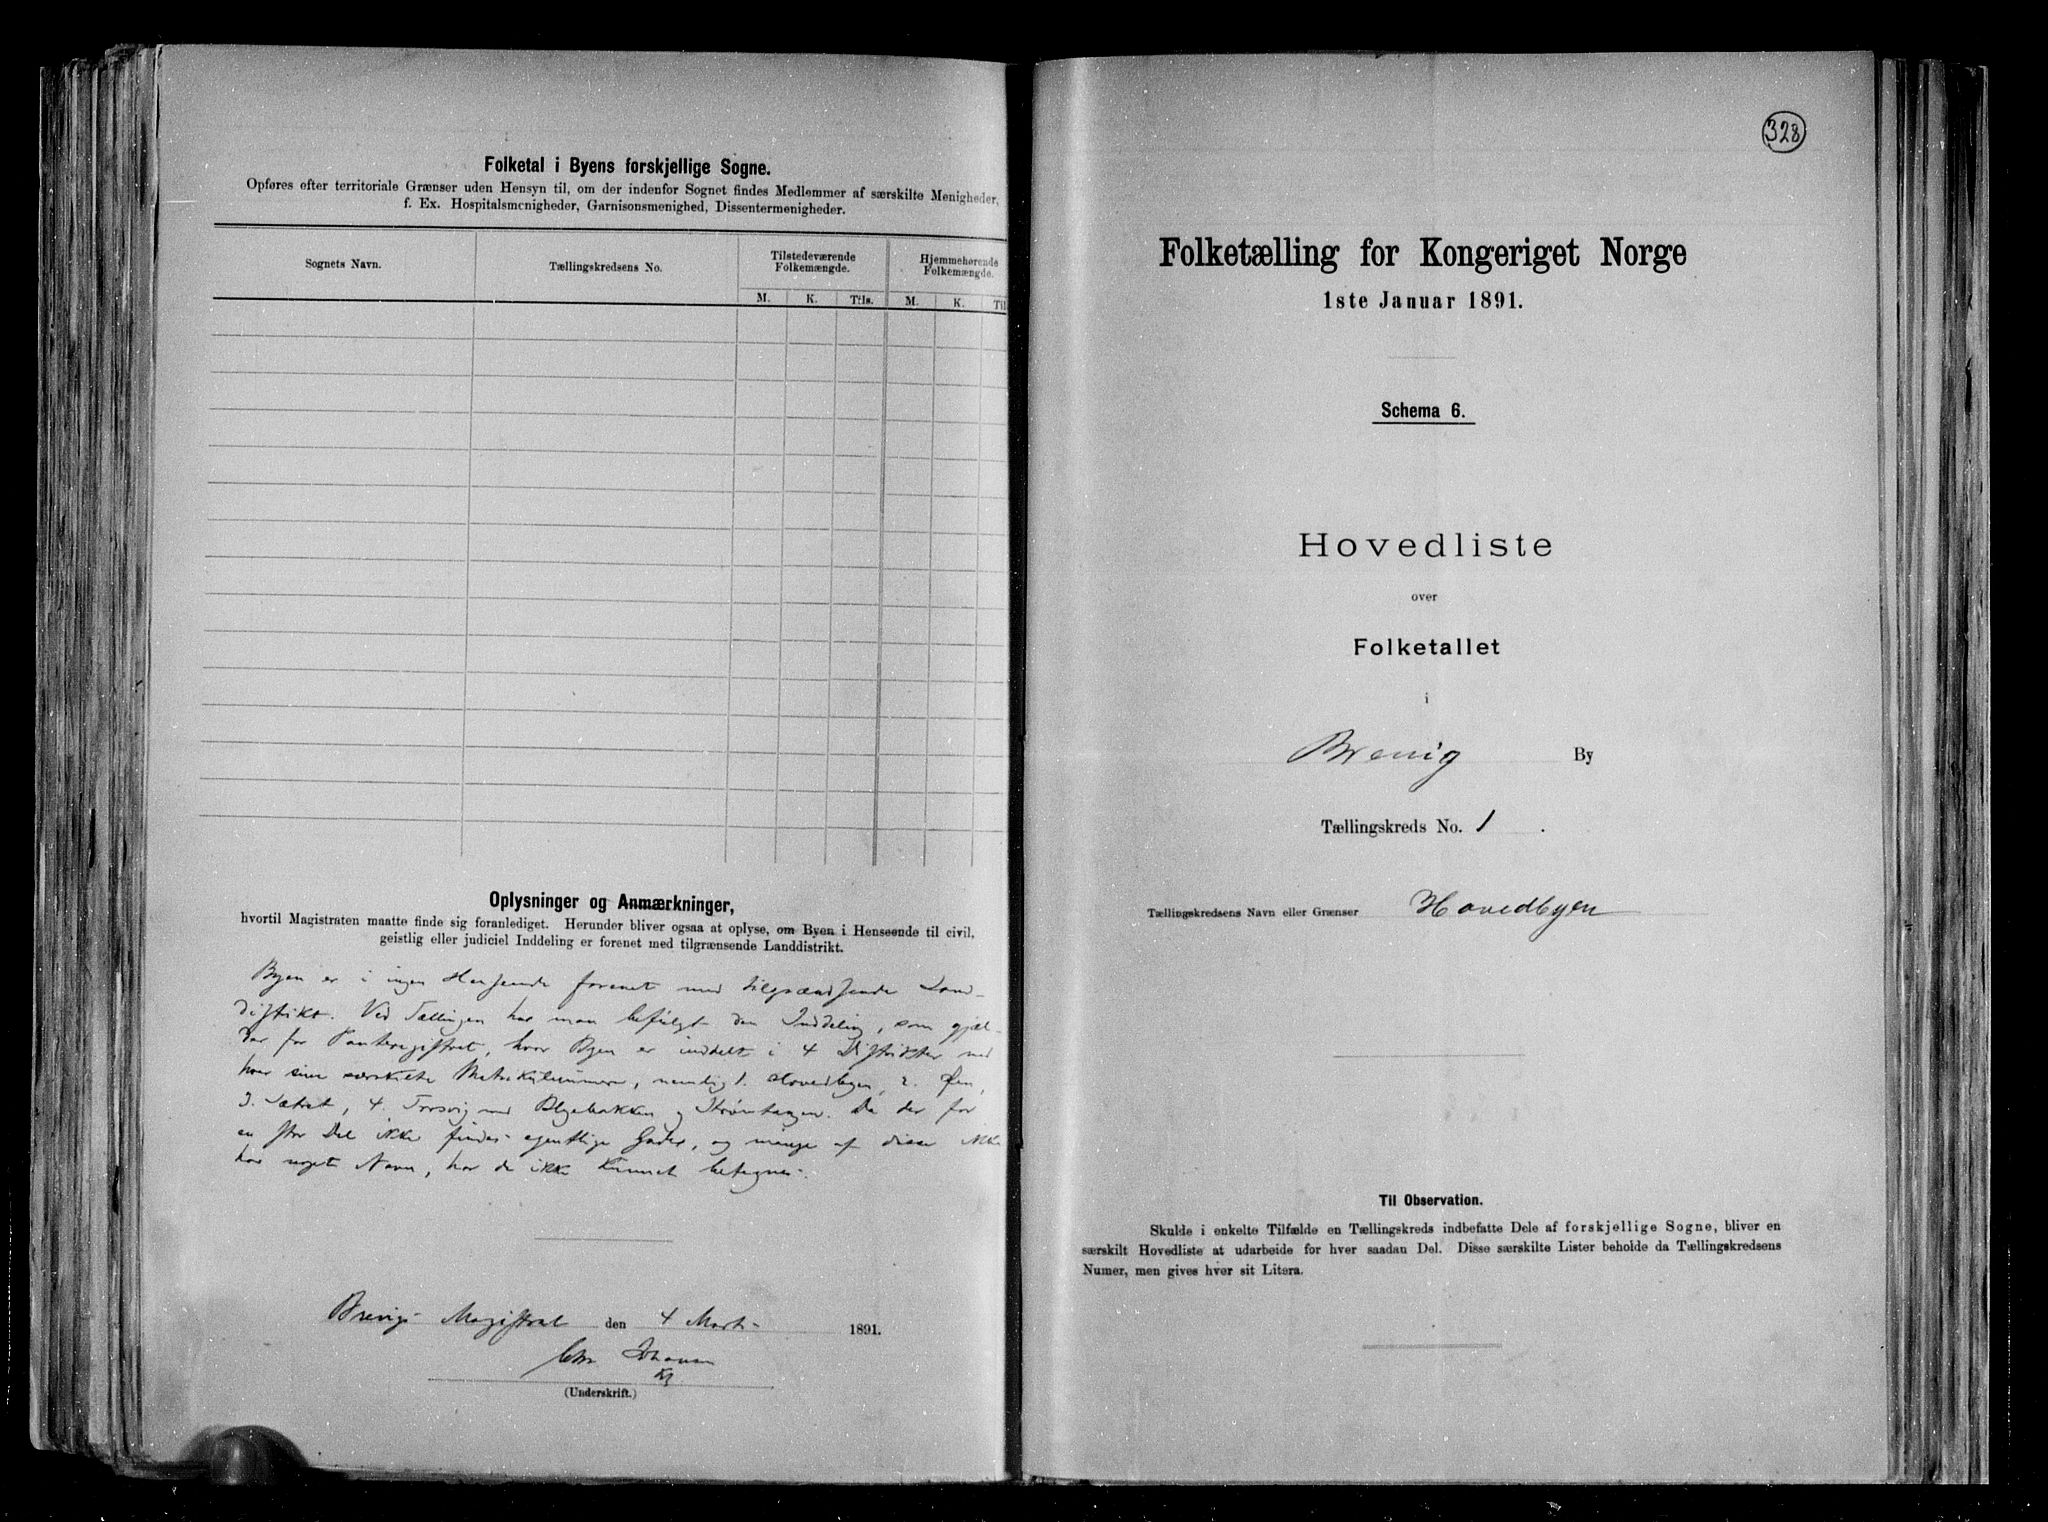 Folketal i Byens forskjellige Sogne.
Opføres efter territoriale Grænser uden Hensyn til, om der indenfor Sognet findes Medlemmer af særskilte Menigheder,
f. Ex. Hospitalsmenigheder, Garnisonsmenighed, Dissentermenigheder.
Sognets Navn.
Tællingskredsens No.
Tilstedeværende
Folkemængde.
Hjemmehørende
Folkemængde.
M. K. Tils. M. K. Til
Oplysninger og Anmærkninger,
hvortil Magistraten maatte finde sig foranlediget. Herunder bliver ogsaa at oplyse, om Byen i Henseende til civil,
geistlig eller judiciel Inddeling er forenet med tilgrænsende Landdistrikt.
Byen er i ingen Henseende forenet med tilgrændsende Land-
distrikt. Ved Tællingen har man befulgt den Inddeling, som gjæl-
der for Panteregistret, hvor Byen er inddelt i 4 Distrikter med
hver sine særskilte Matrikulnummere, nemlig 1. Hovedbyen, 2. Øen,
3. Sætret, 4. Trosvig med Blegebakken og Strømtangen. Da der for
en stor Del ikke findes egentlige Gader, og mange af disse ikke
har noget Navn, har de ikke kunnet betegnes.
Brevigs Magistrat den 4 Marts 1891.
Chr Johansen
(Underskrift.)
328
Folketælling for Kongeriget Norge
1ste Januar 1891.
Schema 6.
Hovedliste
over
Folketallet
i
Brevig By
Tællingskreds No. 1.
Tællingskredsens Navn eller Grænser Hovedbyen
Til Observation.
Skulde i enkelte Tilfælde en Tællingskreds indbefatte Dele af forskjellige Sogne, bliver en
særskilt Hovedliste at udarbeide for hver saadan Del. Disse særskilte Lister beholde da Tællingskredsens
Numer, men gives hver sit Litera.